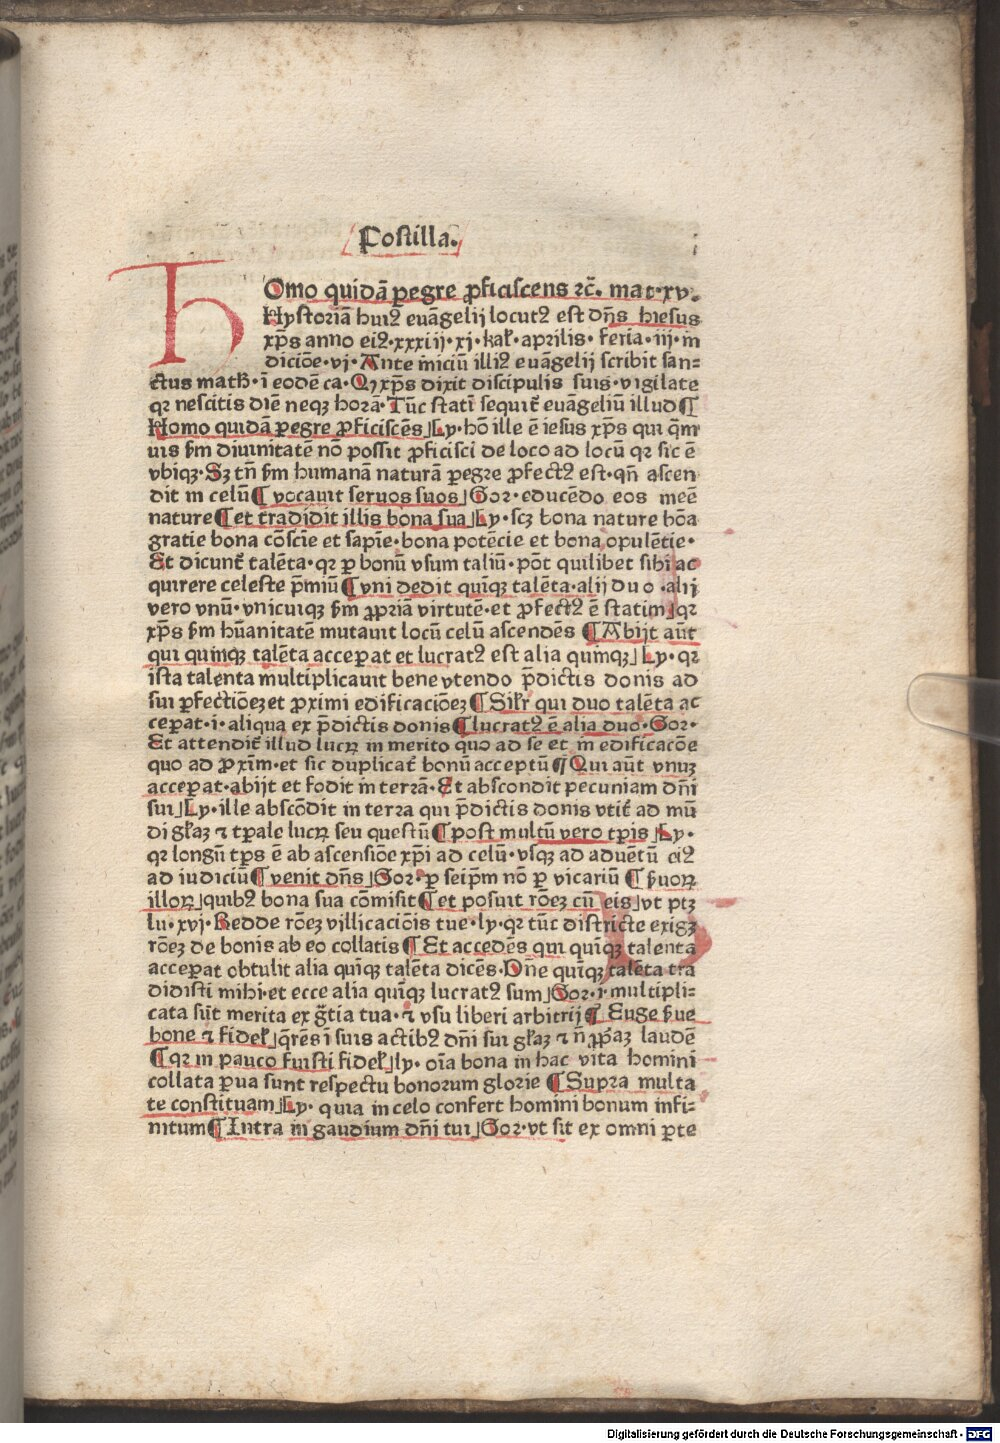 Postilla.
HOmo quidã ꝑegre ꝓficiscens ⁊c̃. mat·xv.
Hystoriã huiꝰ euãgelij locutꝰ est dñs hiesus
xp̄s anno eiꝰ·xxxiij·xj·kaƚ·aprilis·feria·iij·in
diciõe·vj·Ante iniciũ illiꝰ euãgelij scribit san-
ctus math̃·ĩ eodẽ ca·Qꝫ xp̄s dixit discipulis suis·vigilate
qꝛ nescitis diẽ neqꝫ horã·Tũc statĩ sequit̃ euãgeliũ illud¶
Homo quidã ꝑegre ꝓficiscẽs⌋Ly·hõ ille ẽ iesus xp̄s qui qm̃
uis fm̃ diuinitatẽ nõ possit ꝓficisci de loco ad locũ qꝛ sic ẽ
vbiqꝫ·Sꝫ tñ fm̃ humanã naturã ꝑegre ꝓfectꝰ est·qñ ascen
dit in celũ¶ vocauit seruos suos⌋Gor·educẽdo eos meẽ
nature¶ et tradidit illis bona sua⌋Ly·scꝫ bona nature bõa
gratie bona cõscĩe et sapĩe·bona potẽcie et bona opulẽtie·
Et dicunt̃ talẽta·qꝛ ꝑ bonũ vsum taliũ·põt quilibet sibi ac
quirere celeste p̃miũ¶ vni dedit quĩqꝫ talẽta·alij duo·alij
vero vnũ·vnicuiqꝫ fm̃ ꝓpriã virtutẽ·et ꝓfectꝰ ẽ statim⌋qꝛ
xp̄s fm̃ hũanitatẽ mutauit locũ celũ ascendẽs ¶Abijt aũt
qui quinqꝫ talẽta acceꝑat et lucratꝰ est alia quinqꝫ⌋Ly·qꝛ
ista talenta multiplicauit bene vtendo p̃dictis donis ad
sui ꝑfectiõeꝫ et ꝓximi edificaciõeꝫ¶Siƚr qui duo talẽta ac
ceꝑat·i·aliqua ex p̃dictis donis¶lucratꝰ ẽ alia duo·Gor·
Et attendit̃ illud lucꝝ in merito quo ad se et in edificacõe
quo ad ꝓxim̃·et sic duplicat̃ bonũ acceptũ¶Qui aũt vnuꝫ
acceꝑat·abijt et fodit in terrã·Et abscondit pecuniam dñi
sui⌋Ly·ille abscõdit in terra qui p̃dictis donis vtit̃ ad mũ
di gƚaꝫ ⁊ tp̃ale lucꝝ seu questũ¶post multũ vero tp̃is⌋Ly·
qꝛ longũ tp̃s ẽ ab ascensiõe xp̃i ad celũ·vsqꝫ ad aduẽtũ eiꝰ
ad iudiciũ¶venit dñs⌋Gor·ꝑ seip̃m nõ ꝑ vicariũ¶ẜuoꝝ
illoꝝ⌋quibꝰ bona sua cõmisit¶et posuit rõeꝫ cũ eis⌋vt ptꝫ
lu·xvj·Redde rõeꝫ villicaciõis tue·ly·qꝛ tũc districte exigꝫ
rõeꝫ de bonis ab eo collatis¶Et accedẽs qui quĩqꝫ talenta
acceꝑat obtulit alia quĩqꝫ talẽta dicẽs·Dñe quĩqꝫ talẽta tra
didisti mihi·et ecce alia quĩqꝫ lucratꝰ sum⌋Gor·i·multipli-
cata sũt merita ex gr̃tia tua·⁊ vsu liberi arbitrij¶Euge ẜue
bone ⁊ fideƚ⌋q̃rẽs ĩ suis actibꝰ dñi sui gƚaꝫ ⁊ ñ ꝓp̃aꝫ laudẽ
¶qꝛ in pauco fuisti fideƚ⌋ly·oĩa bona in hac vita homini
collata ꝑua sunt respectu bonorum glorie ¶Supra multa
te constituam⌋Ly·quia in celo confert homini bonum infi-
nitum¶Intra in gaudium dñi tui⌋Gor·vt sit ex omni ꝑte
Digitalisierung gefördert durch die Deutsche Forschungsgemeinschaft - DFG